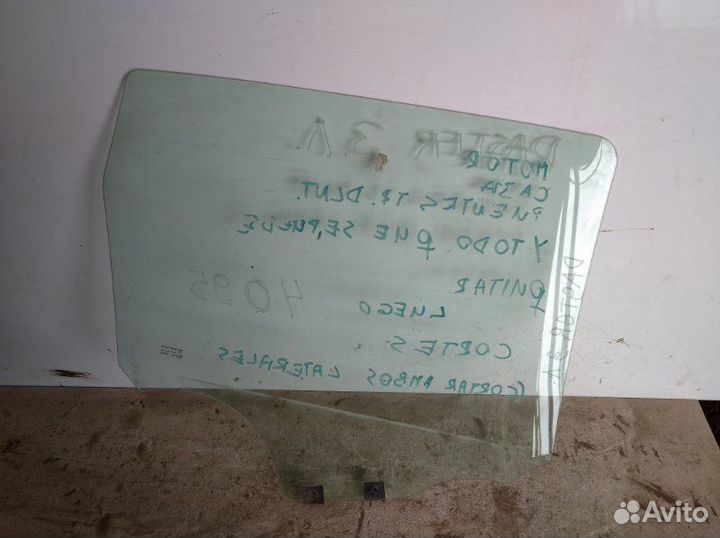 DASTER 3.A.
MOTOR
CAJA
PUENTES TR. DLNT.
Y TODO QUE SE PUEDE
QUITAR
4095
LUEGO
CORTES
CORTAR AMBOS LATERALES
Avito